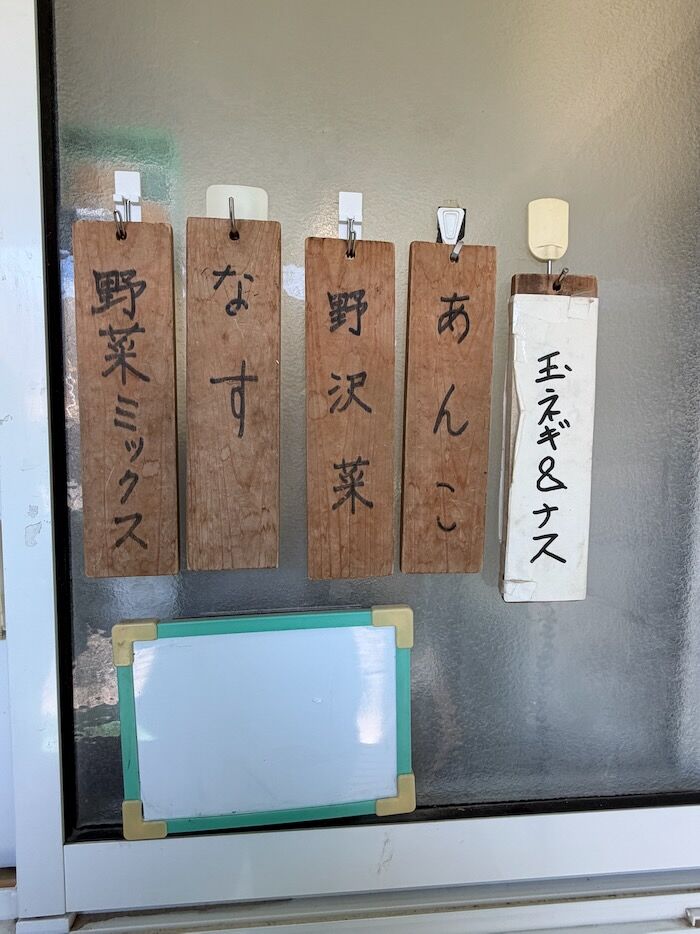 野菜ミックス
なす
野沢菜
あんこ
玉ネギ&ナス